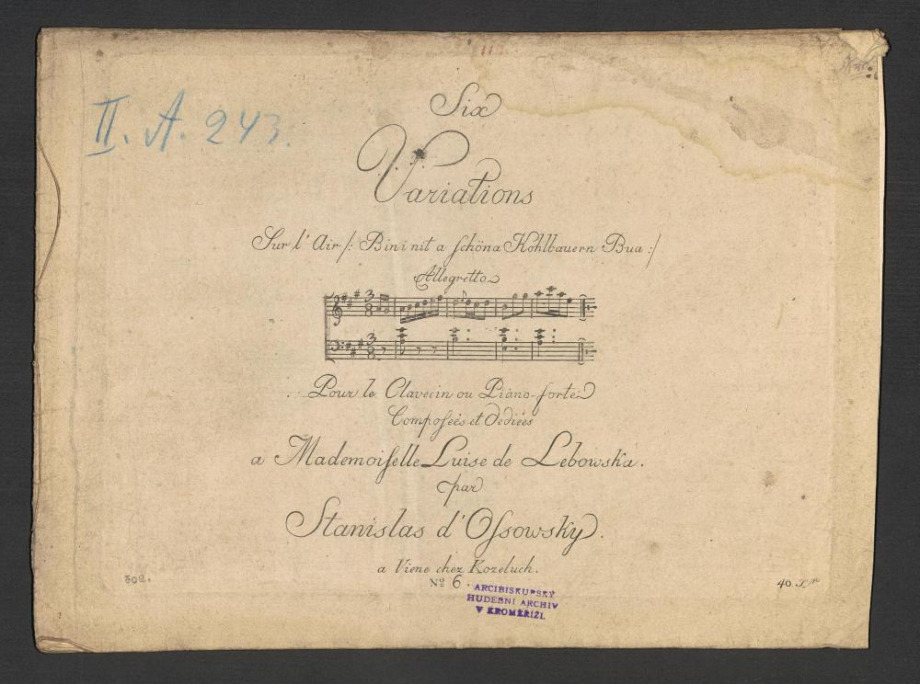 II. A. 243.
Six
Variations
Sur l'Air /: Bin i nit a schöna Kohlbauern Bua :/
Allegretto
Pour le Clavecin ou Piano-forte
Composées et Dediées
a Mademoiselle Luise de Lebowska.
par
Stanislas d'Ossowsky.
a Viene chez Kozeluch.
802.
Nº 6.
40 x
ARCIBISKUPSKÝ
HUDEBNÍ ARCHIV
V KROMĚŘÍŽI.